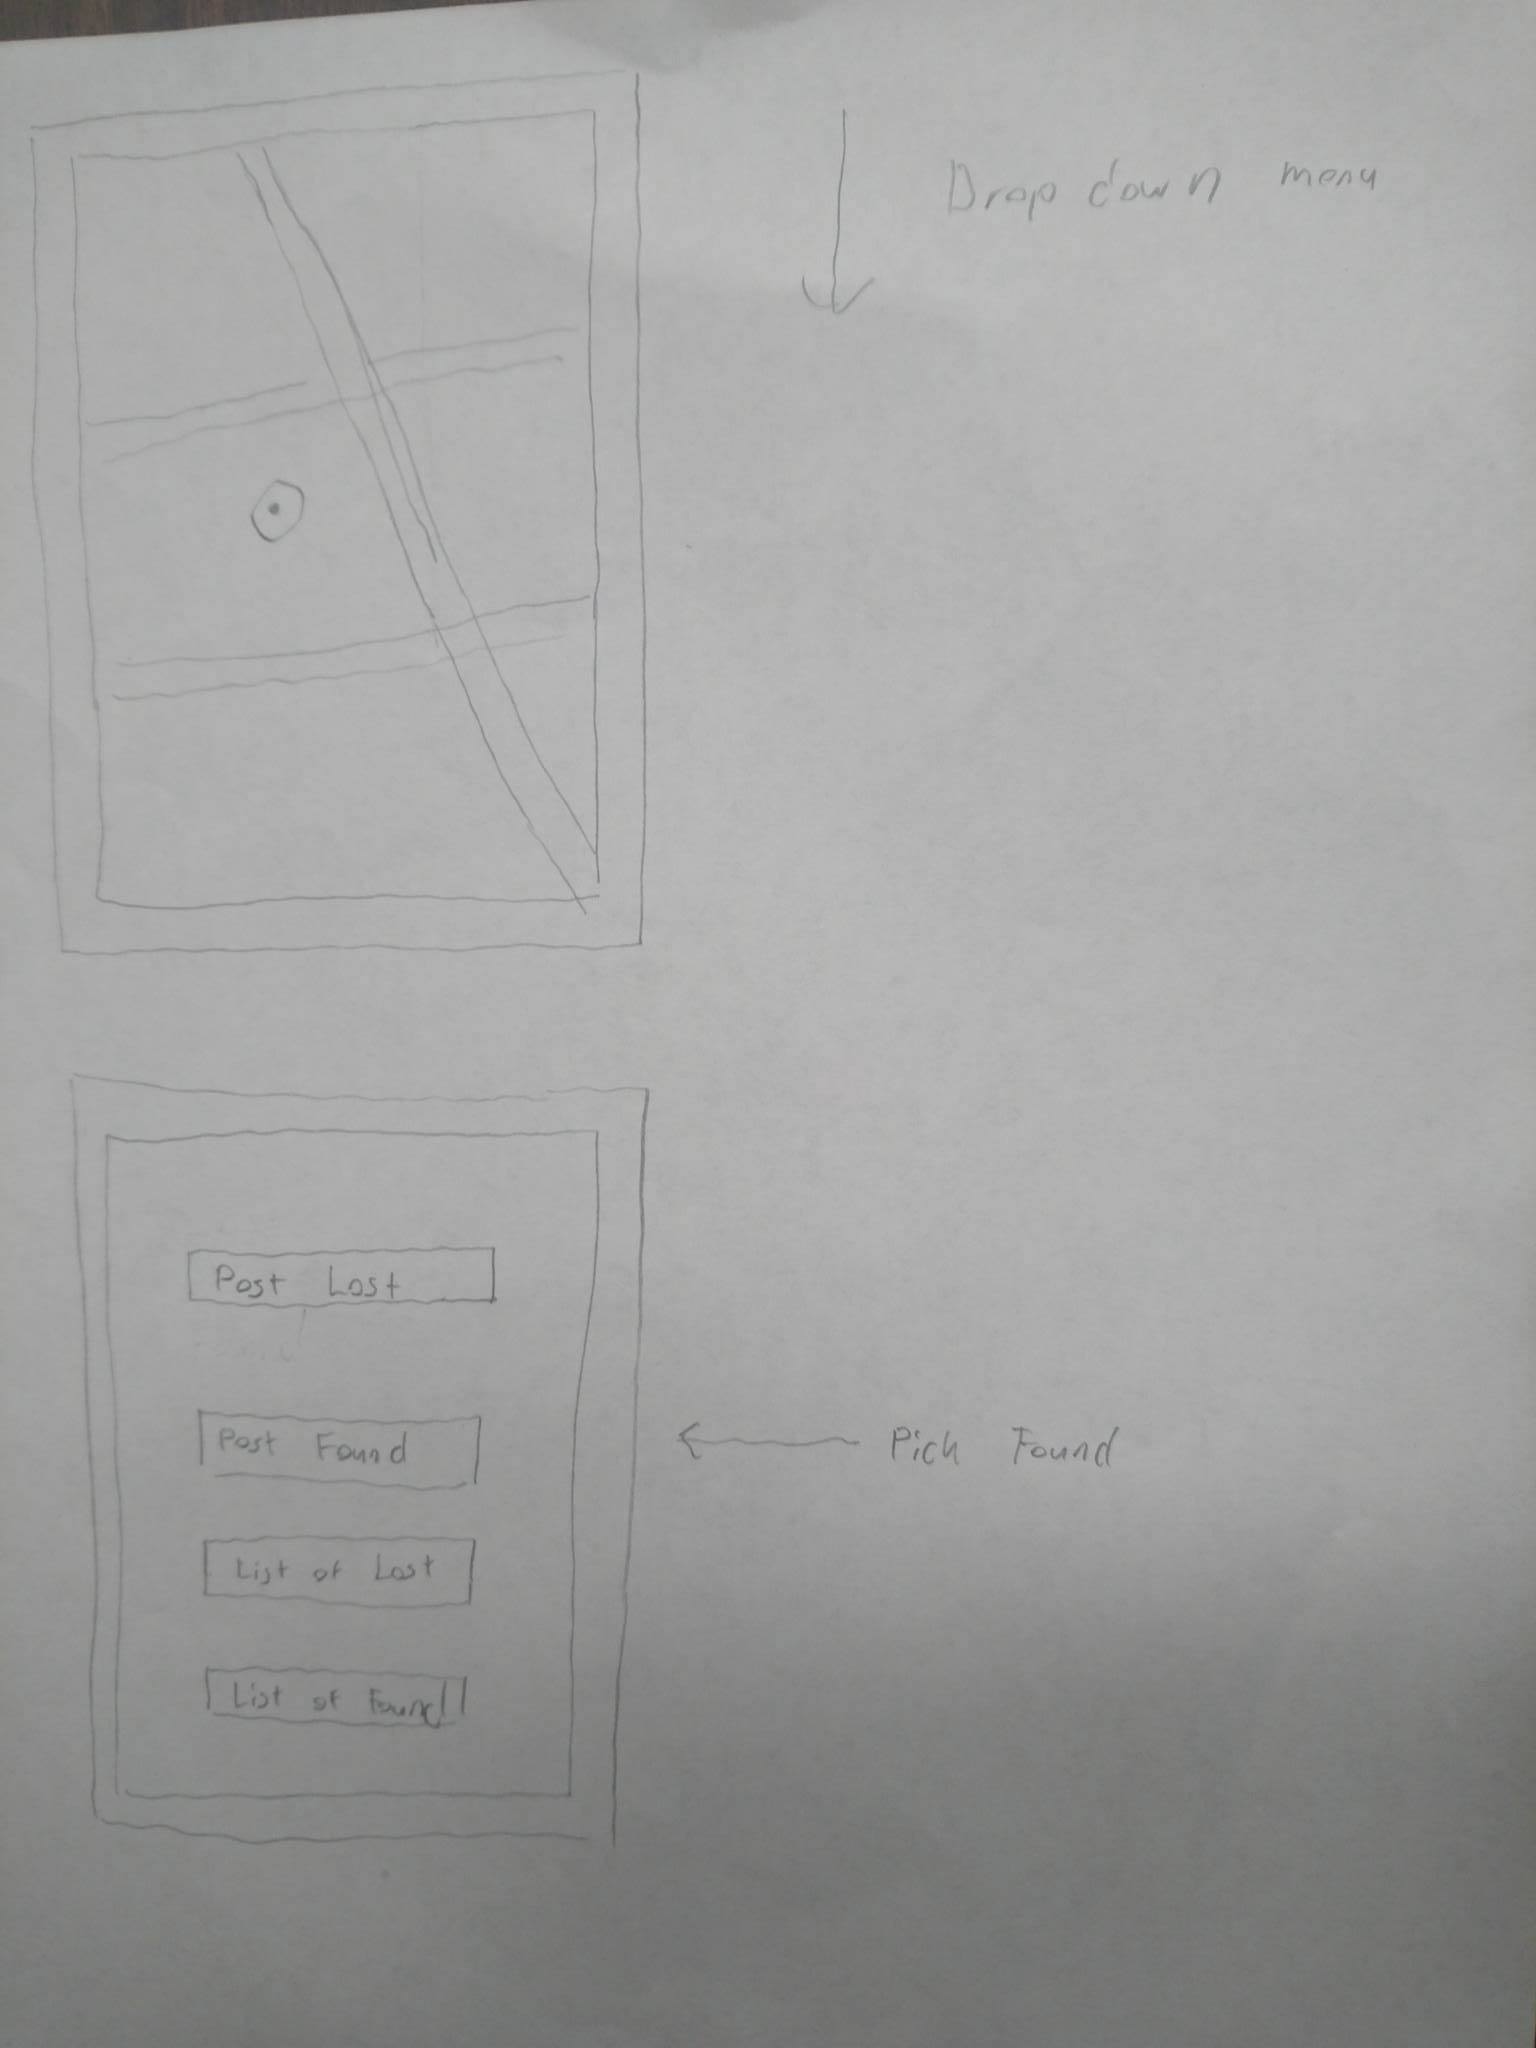 Drop down menu
Post Lost
Post Found
Pick Found
List of Lost
List of Found